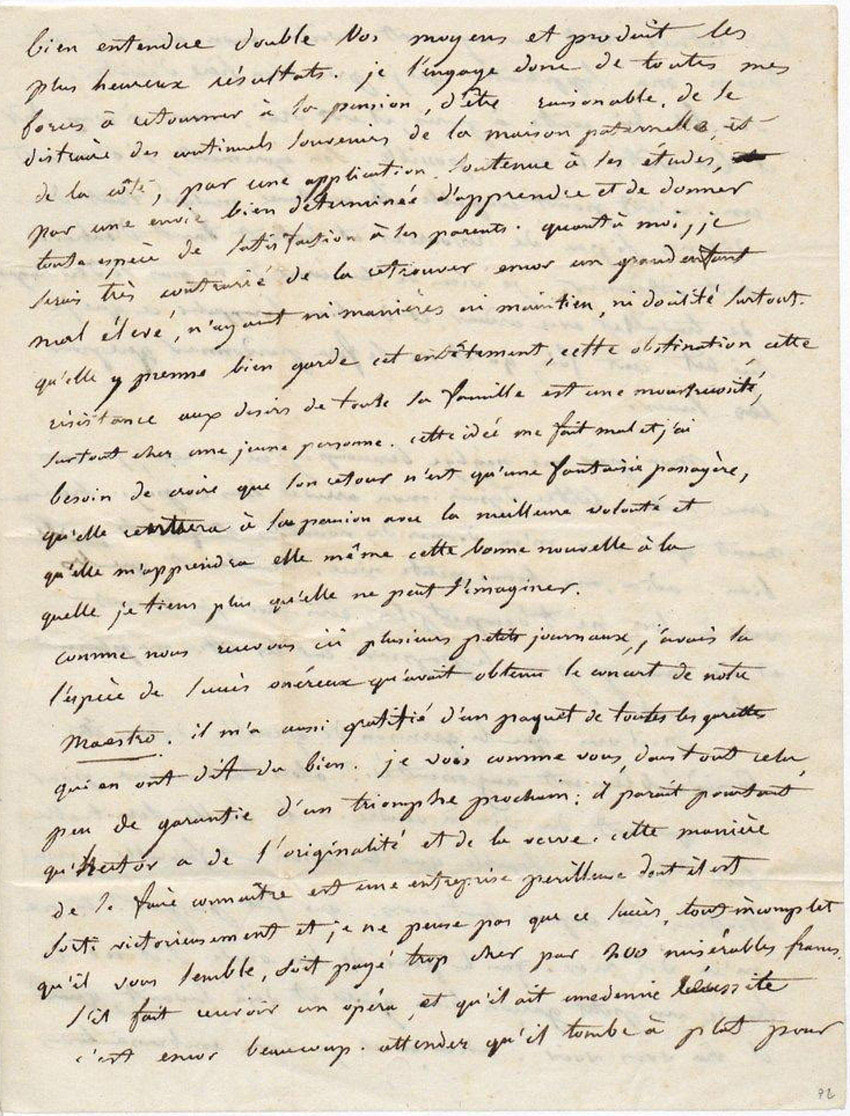 bien entendue double vos moyens et produit les
plus heureux résultats. je l'engage donc de toutes mes
forces à retourner à la pension, d'être raisonable, de se
distraire des continuels souvenirs de la maison paternelle, et
de la côte, par une application soutenue à ses études,
par une envie bien déterminée d'apprendre et de donner
toute espèce de satisfaction à ses parents. quant à moi, je
serais très contrarié de la retrouver encor un grand enfant
mal élevé, n'ayant ni manières ni maintien, ni docilité surtout.
qu'elle y prenne bien garde cet entêtement, cette obstination, cette
résistance aux desirs de toute sa famille est une monstruosité,
surtout chez une jeune personne. cette idée me fait mal et j'ai
besoin de croire que son retour n'est qu'une fantaisie passagère,
qu'elle rentrera à sa pension avec la meilleure volonté et
qu'elle m'apprendra elle même cette bonne nouvelle à la
quelle je tiens plus qu'elle ne peut s'imaginer.
comme nous recevons ici plusieurs petits journaux, j'avais lu
l'espèce de succès onéreux qu'avait obtenu le concert de notre
Maestro. il m'a aussi gratifié d'un paquet de toutes les gazettes
qui en ont dit du bien. je vois comme vous, dans tout cela,
peu de garantie d'un triomphe prochain; il parait pourtant
qu'hector a de l'originalité et de la verve. cette manière
de se faire connaître est une entreprise perilleuse dont il est
sorti victorieusement et je ne pense pas que ce succès, tout incomplet
qu'il vous semble, soit payé trop cher par 200 misérables francs.
s'il fait recevoir un opéra, et qu'il ait une demie réussite
c'est encor beaucoup. attendez qu'il tombe à plat pour